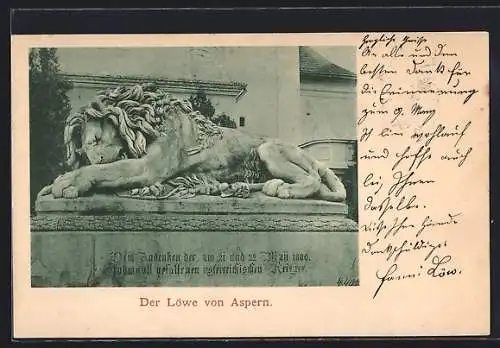 Zum Andenken der am 21 und 22 Mai 1809.
ruhmvoll gefallenen österreichischen Krieger
Der Löwe von Aspern.
herzliche Grüße
An alle und den
besten Dank für
die Erinnerung
zum 9. März
Ich bin wohlauf
und hoffe auch
bei Ihnen
dasselbe.
Ihre
dankschuldigst
Fanni Löw.